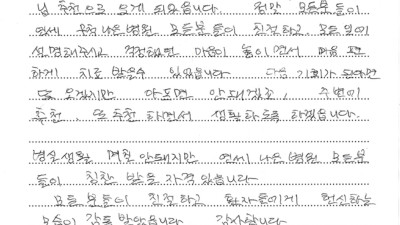 님 추천으로 오게 되었습니다. 정말 모든분들이
연세 굿 나은병원 모든분들이 친절하고, 모든일에
설명해주시고 걱정했던 마음이 놓이면서 마음 편
하게 치료 받을수 있었습니다. 다음 기회가 된다면
또 오겠지만 아프면 안돼겠죠, 주변에
추천, 또 추천 하면서 생활 하도록 하겠습니다.
병실생활 몇칠 안돼지만 연세 나은병원 모든분
들이 칭찬 받을 자격 있습니다.
모든 분들이 친절하고 환자들에게 헌신하는
모습이 감동 받았습니다. 감사합니다.